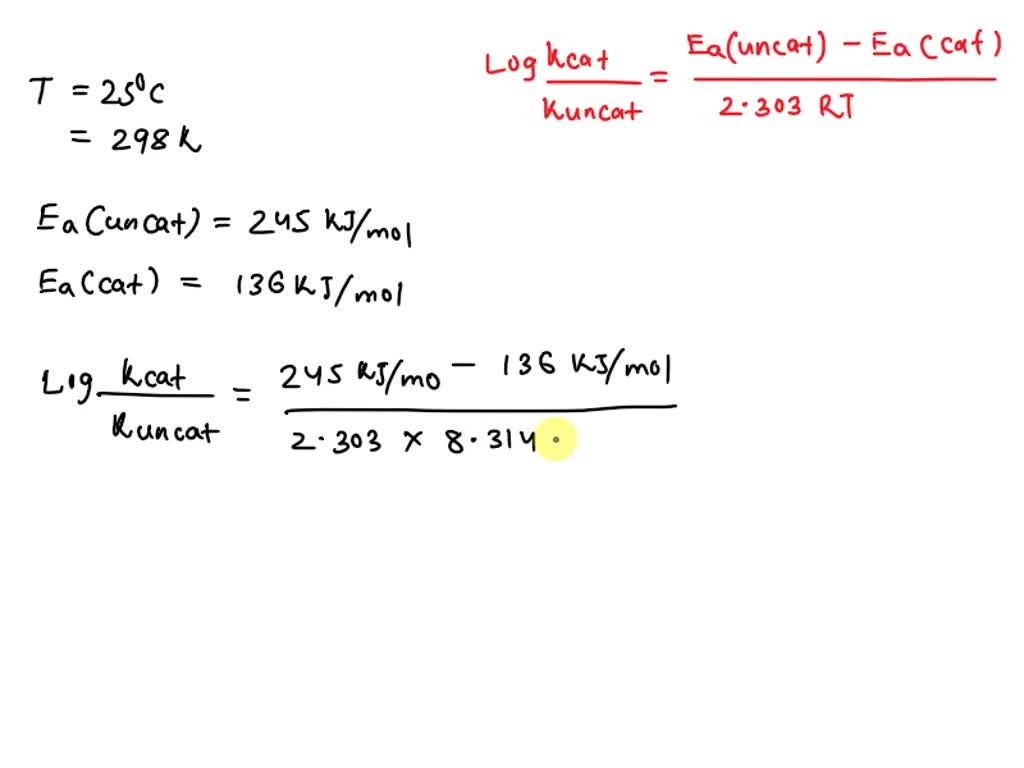 Log kcat / kuncat = Ea(uncat) - Ea(cat) / 2.303 RT
T = 25°C
= 298 k
Ea(uncat) = 245 KJ/mol
Ea(cat) = 136 KJ/mol
Log kcat / kuncat = 245 KJ/mo - 136 KJ/mol / 2.303 × 8.314